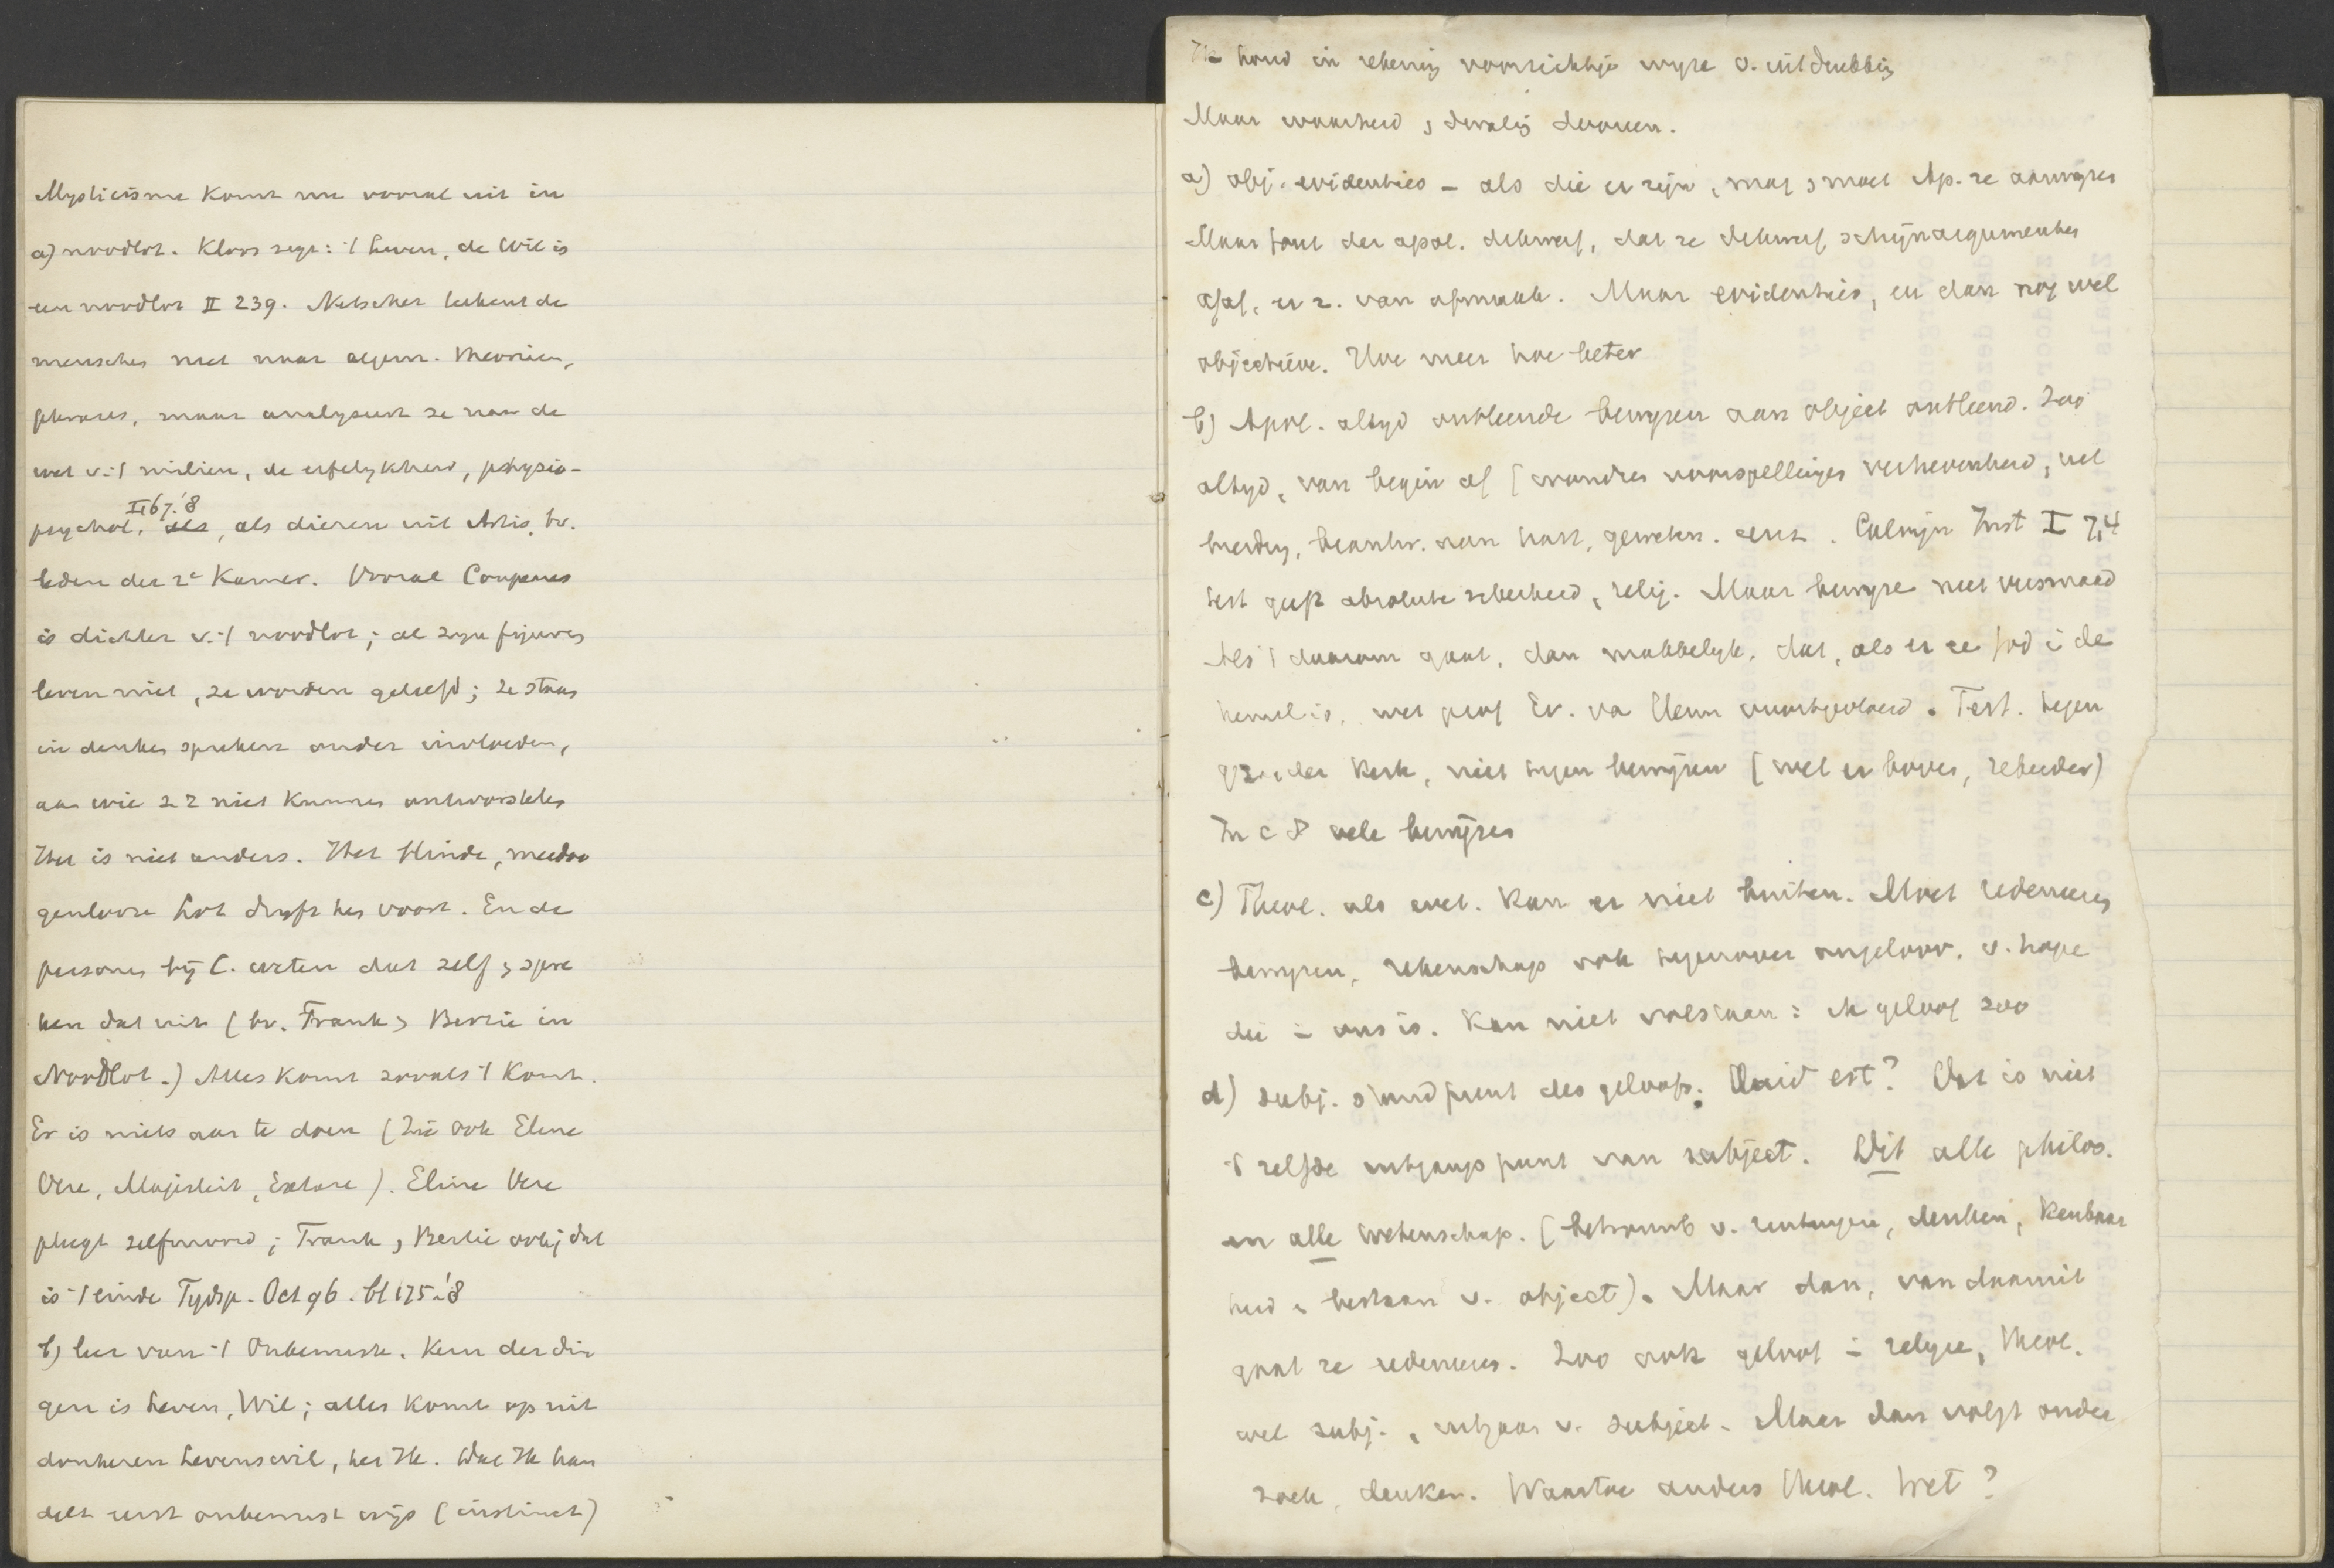 Mysticisme komt nu vooral uit in
a) noodlot. Kloos zegt: 't Leven, de Wil is
een noodlot II 239. Netscher teekent de
menschen niet naar algem. theorieën,
phrases, maar analyseert ze naar de
wet v. 't milieu, de erfelykheid, physio-
psychol. I 67.'8, als dieren uit Artis, bv.
leden der 2e Kamer. Vooral Couperus
is dichter v. 't noodlot; al zyn figuren
leven niet, ze worden geleefd; ze staan
in denken spreken onder invloeden,
aan wie zz niet kunnen ontworstelen
Het is niet anders. Het blinde, meedoo
genlooze Lot dryft hen voort. En de
personen bij C. weten dat zelf, spre
ken dat uit (bv. Frank, Bertie in
Noodlot.) Alles komt zooals 't komt.
Er is niets aan te doen (Zie ook Eline
Vere, Majesteit, Extaze). Eline Vere
pleegt zelfmoord; Frank, Bertie ook; dat
is 't einde Tydsp. Oct 96. bl 175.'8
b) leer van 't Onbewuste. Kern der din
gen is Leven, Wil; alles komt op uit
donkeren Levenswil, het Ik. Wat Ik han
delt eerst onbewust wijs (instinct)
Ik houd in rekening voorzichtige wyze v. uitdrukking
Maar waarheid, dwaling dooreen.
a) obj. evidenties - als die er zijn, mag, moet Ap. ze aanwyzen
Maar fout der apol. dikwerf, dat ze dikwerf schijnargumenten
gaf, er z. van afmaakte. Maar evidenties, en dan nog wel
objectieve. Hoe meer hoe beter
b) Apol. altyd ontleende bewyzen aan object ontleend. Zoo
altyd, van begin af (wondren voorspellingen verhevenheid, uit
breiding, beantw. aan hart, geweten. enz. Calvijn Inst I 7,4
test geeft absolute zekerheid, relig. Maar bewyze niet versmaad
Als 't daarom gaat, dan makkelyk, dat, als er ee God i de
hemel is, wet prof Ev. va Hem voortgevloeid. Test. tegen
gz. der Kerk, niet tegen bewijzen (wel er boven, zekerder)
In c 8 vele bewijzen
c) Theol. als wet. Kan er niet buiten. Moet redeneeren
bewyzen, rekenschap ook tegenover ongeloov. v. hope
die in ons is. Kan niet volstaan: ik geloof zoo
d) subj. standpunt des geloofs. Quid est? Dat is niet
't zelfde uitgangspunt van subject. Dit alle philos.
en alle wetenschap. (betrouwb v. zintuigen, denken, kenbaar
heid, bestaan v. object). Maar dan, van daaruit
gaat ze redeneeren. Zoo ook geloof in religie, theol.
wel subj., uitgaan v. subject. Maar dan volgt onder
zoek, denken. Waartoe anders theol. wet?